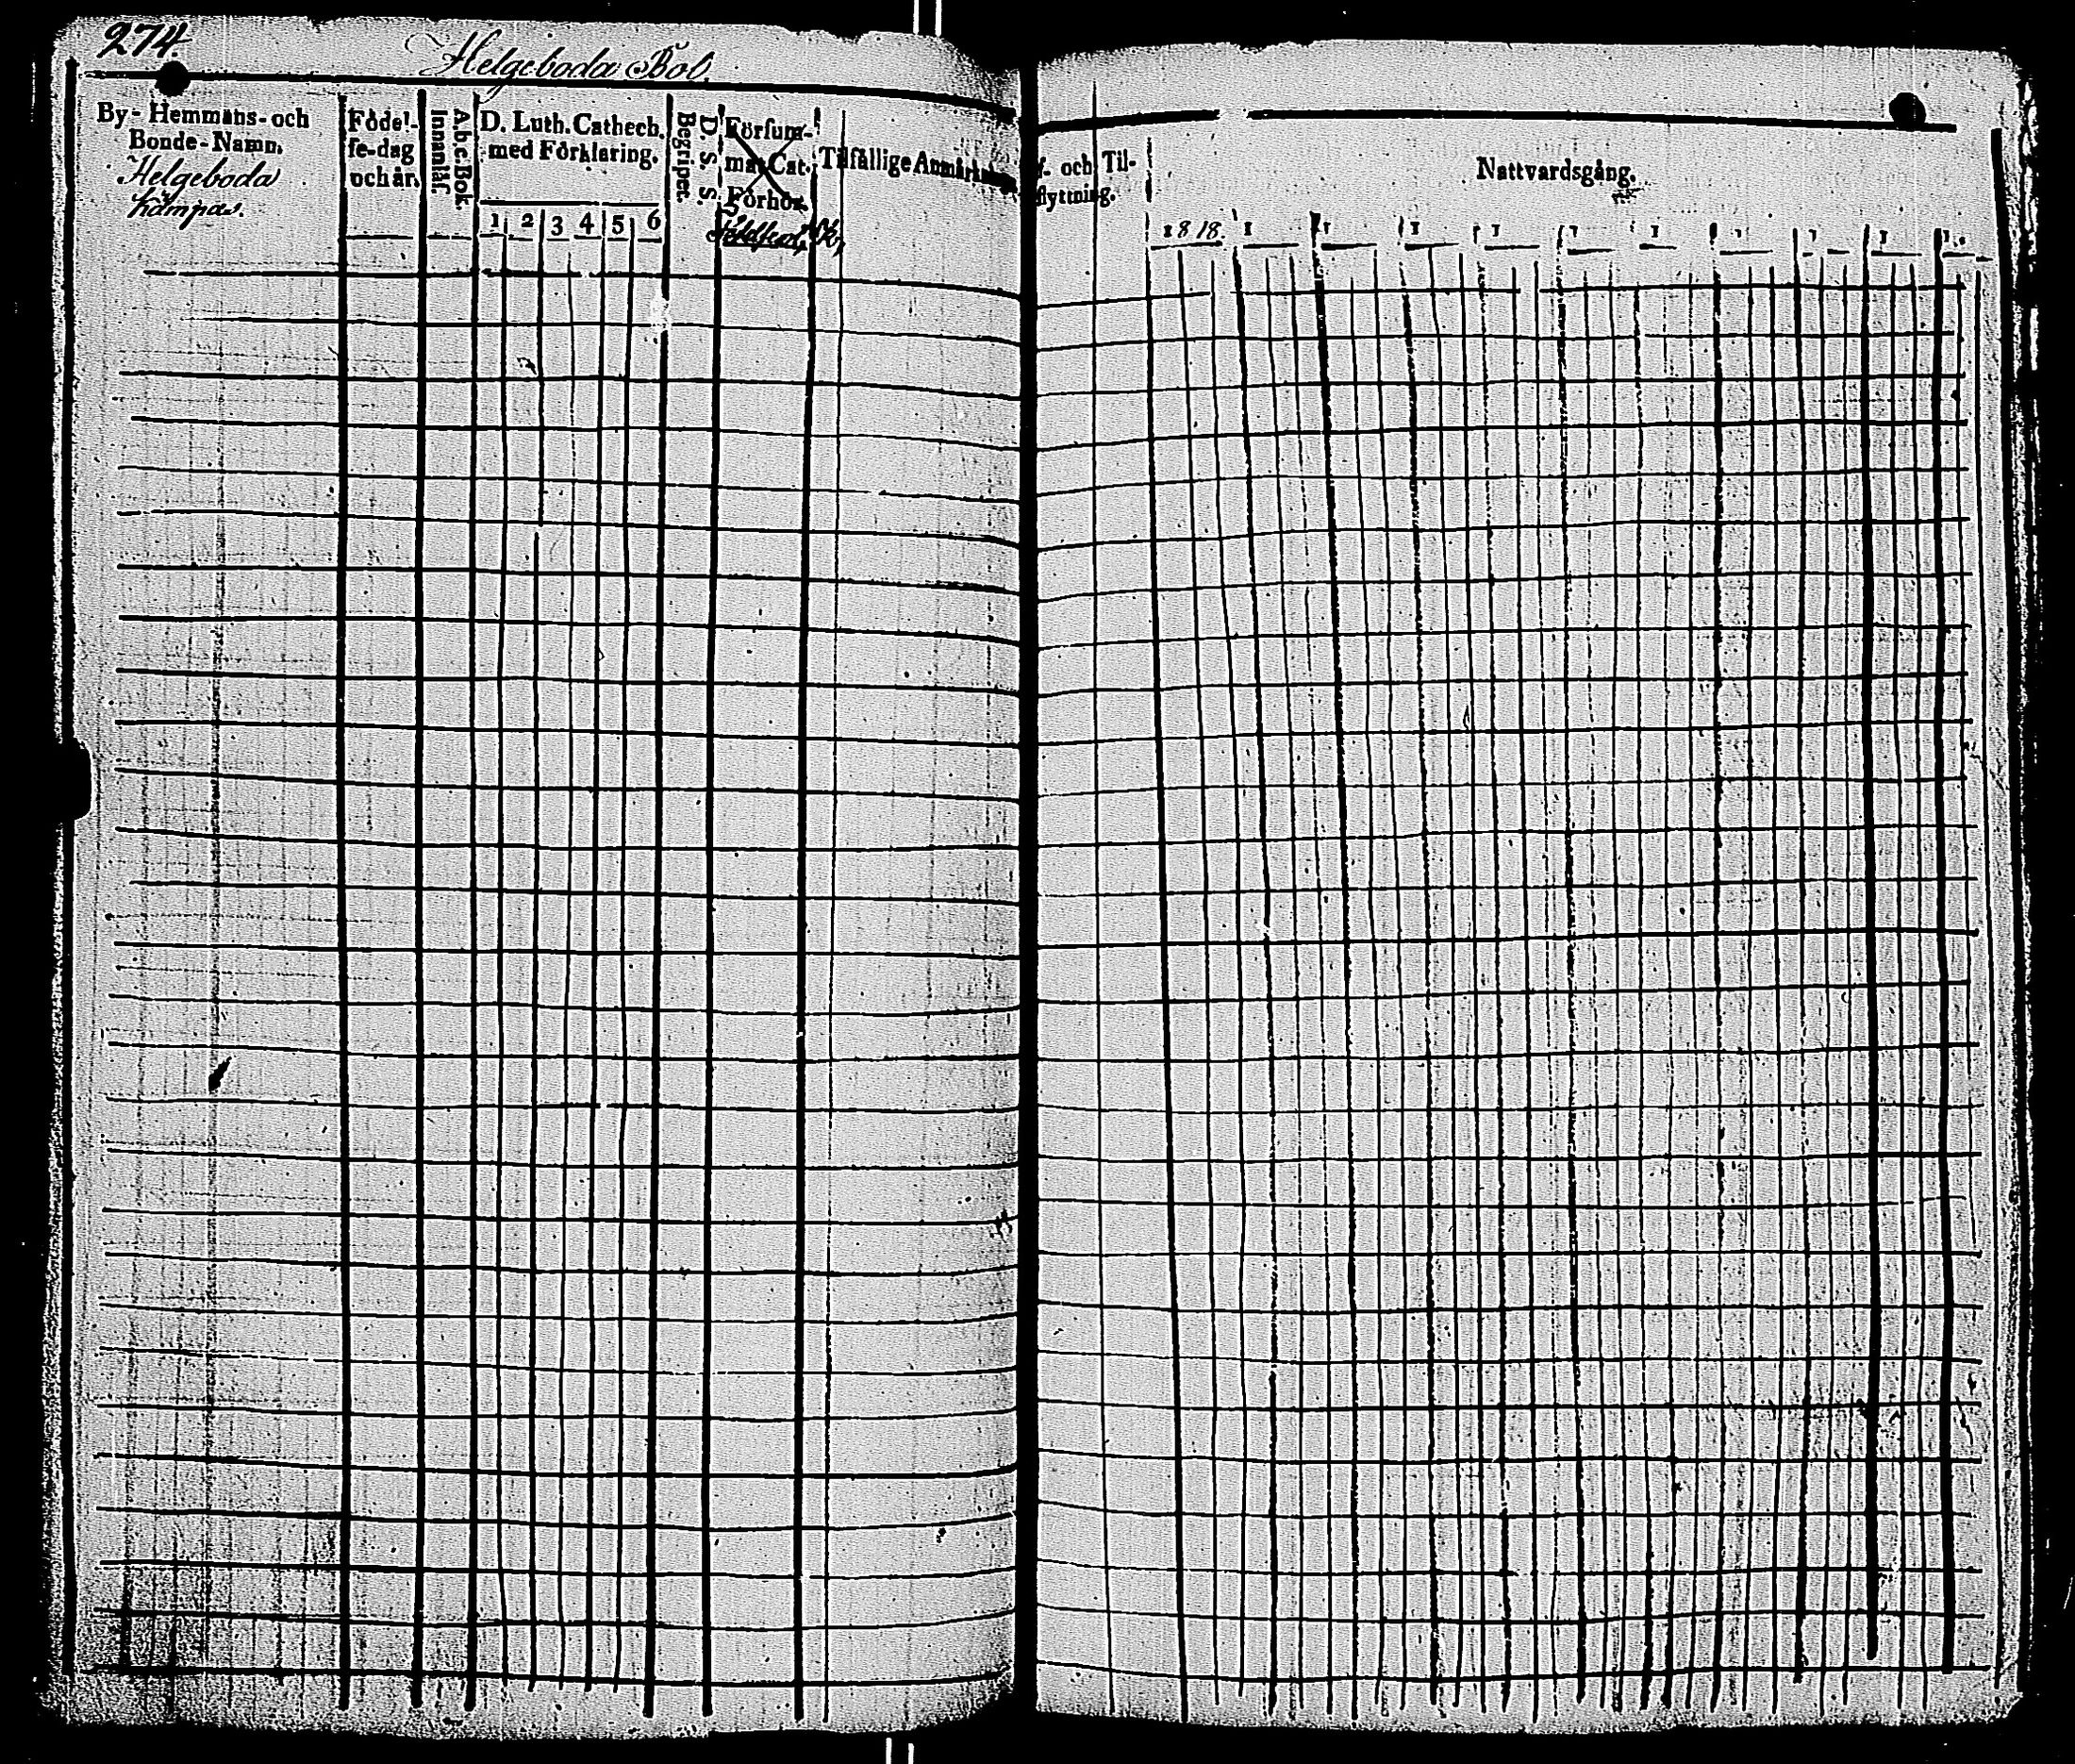 274.
Helgeboda Bol.
By-Hemmans-och
Bonde-Namn.
Helgeboda
Kämpas.
Födel-
se-dag
och år.
A.b.c.Bok.
Innanläs.
D. Luth. Cathech.
med Förklaring.
1 2 3 4 5 6
D. S. S.
Begripet.
Försum-
mat Cat.
Förhör.
Tilfällige Anmärkn
f- och Til-
flyttning.
Nattvardsgång.
1818. 1 1 1 1 1 1 1 1 1 1